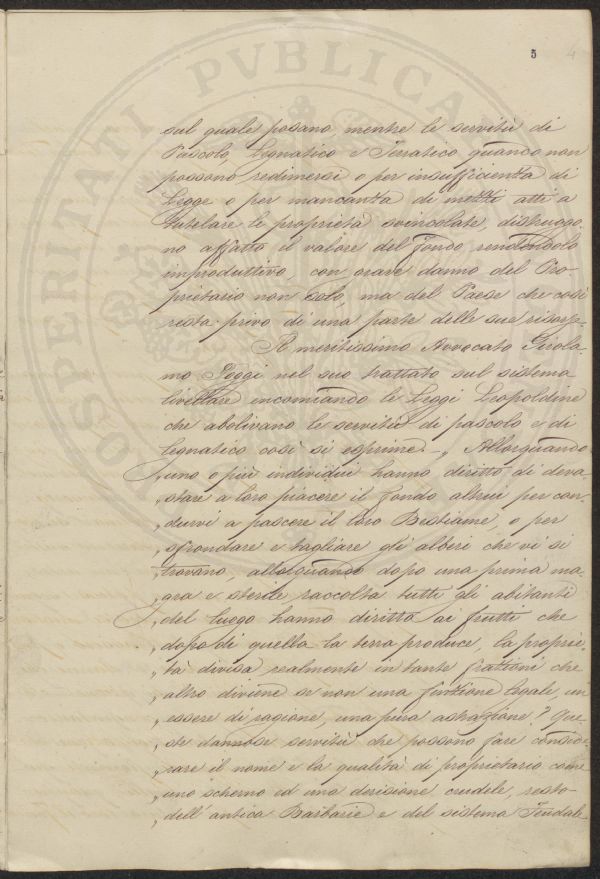 5 4
sul quale posano, mentre le servitù di
Pascolo, Legnatico e Terratico, quando non
possono redimersi o per insufficienza di
Legge o per mancanza di mezzi atti a
tutelare le proprietà svincolate, distruggo,
no affatto il valore del fondo, rendendolo
improduttivo con grave danno del Pro-
prietario non solo, ma del Paese che così
resta privo di una parte delle sue risorse.
Il meritissimo Avvocato Girola,
mo Poggi nel suo trattato sul sistema
livellare encomiando le Leggi Leopoldine
che abolivano le servitù di pascolo e di
legnatico così si esprime - „ Allorquando
„ uno o più individui hanno diritto di deva,
„ stare a loro piacere il fondo altrui per con,
„ durvi a pascere il loro Bestiame, o per
„ sfrondare e tagliare gli alberi che vi si
„ trovano, allorquando dopo una prima ma,
„ gra e sterile raccolta tutti gli abitanti
„ del luogo hanno diritto ai frutti che
„ dopo di quella la terra produce, la proprie,
„ tà divisa realmente in tante frazioni che
„ altro diviene se non una finzione legale, un
„ essere di ragione, una pura astrazione? Que
„ ste dannose servitù che possono fare conside,
„ rare il nome e la qualità di proprietario come
„ uno scherno ed una derisione crudele, resto
„ dell'antica Barbarie e del sistema Feudale
PROSPERITATI PVBLICAE